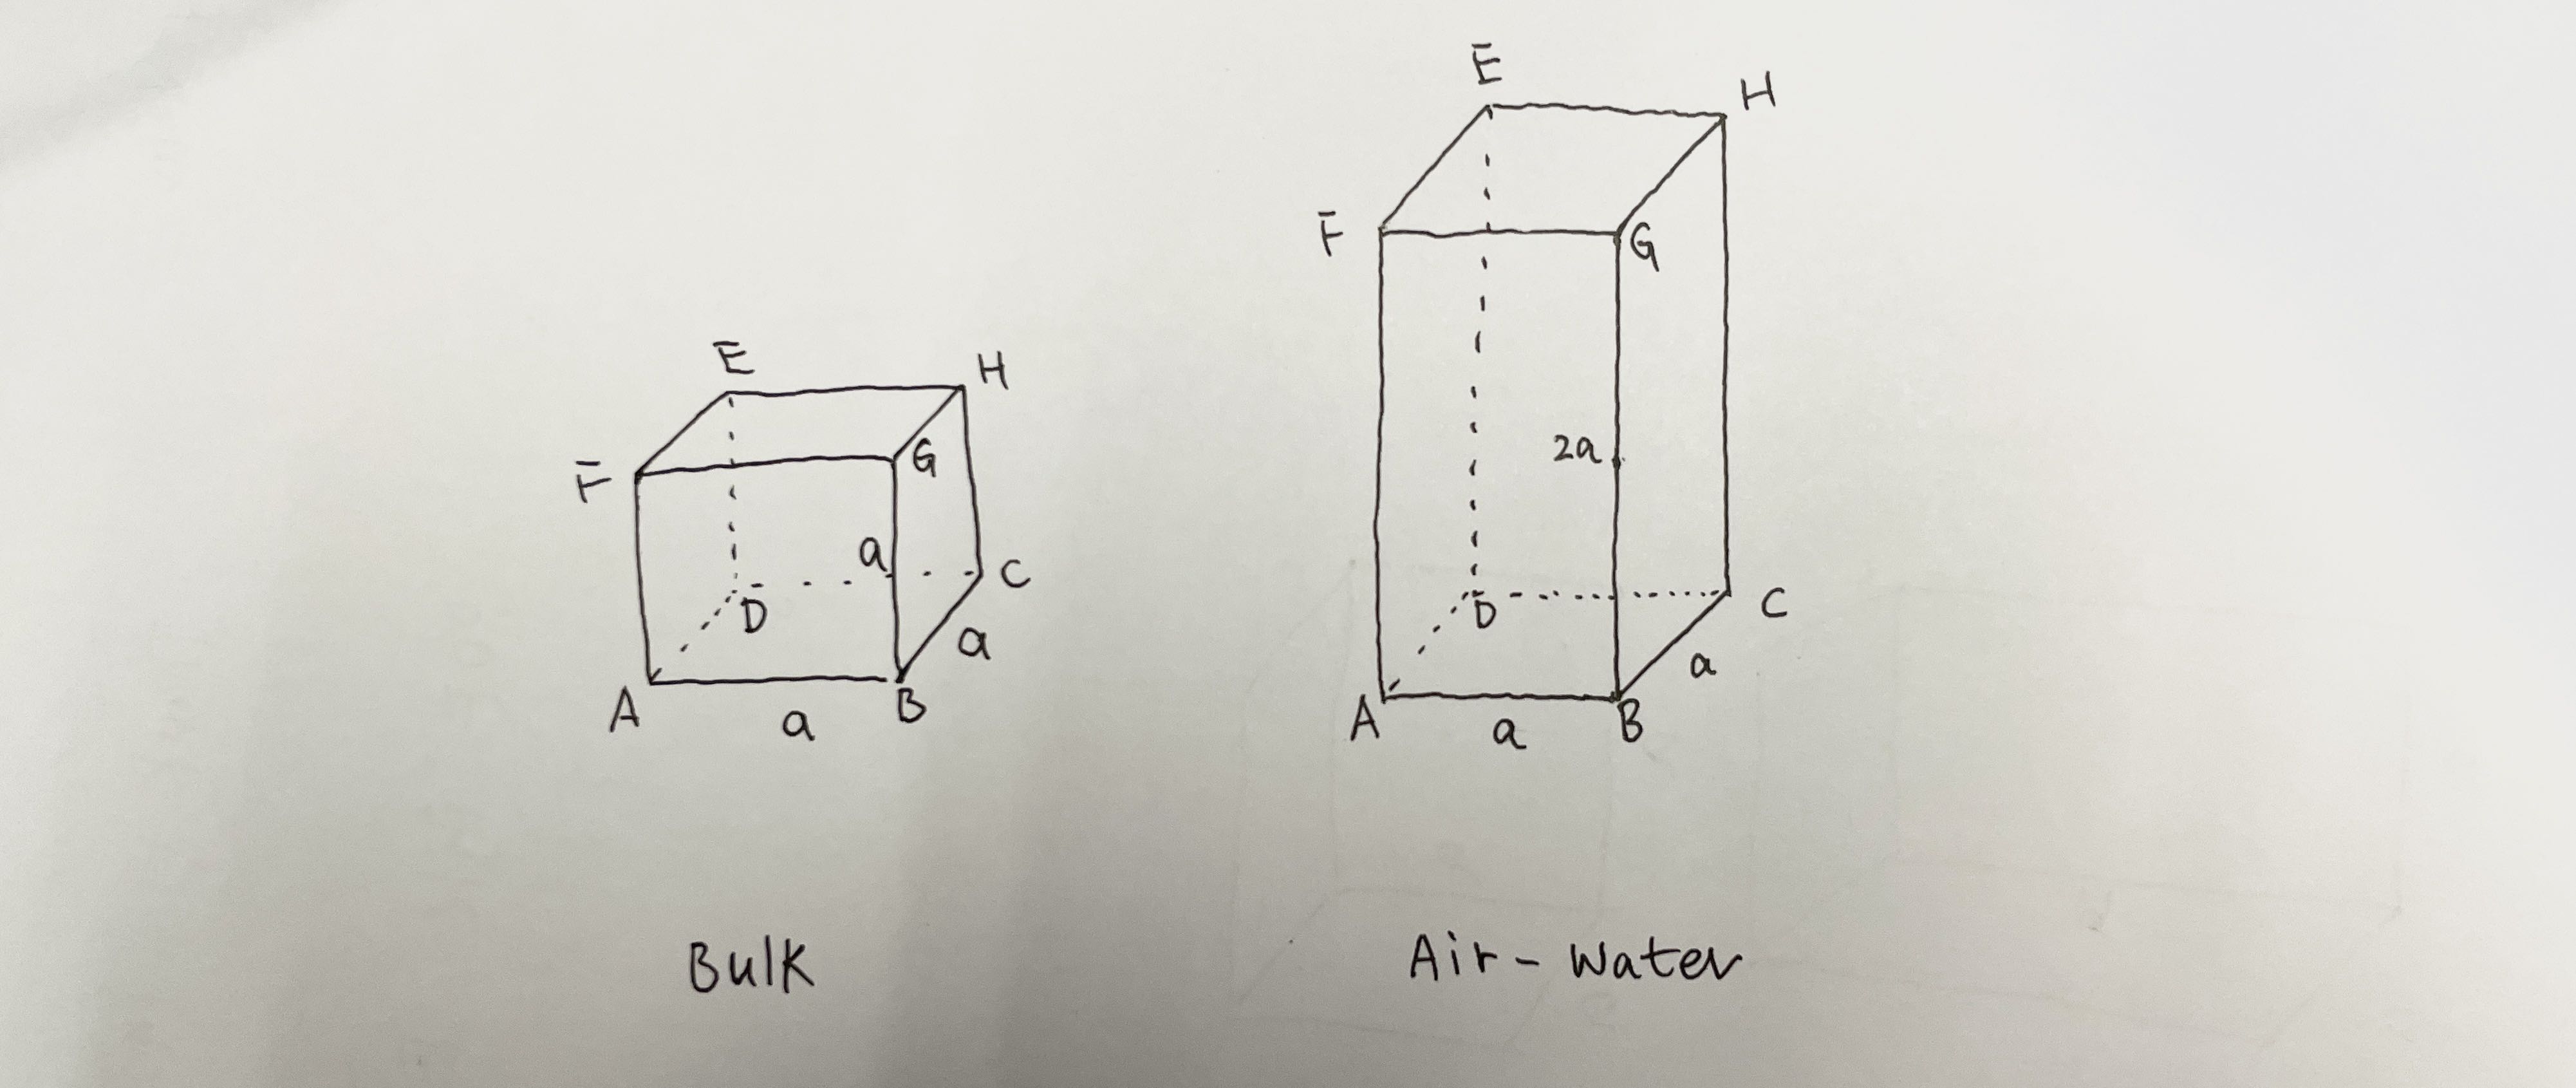 E
H
F
G
a
D
C
a
A
B
a
Bulk
E
H
F
G
2a
D
C
a
A
B
a
Air-Water